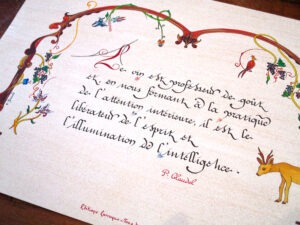 Le vin est professeur de goût
et en nous formant à la pratique
de l'attention intérieure, il est le
libérateur de l'esprit et
l'illumination de l'intelligence.
P. Claudel